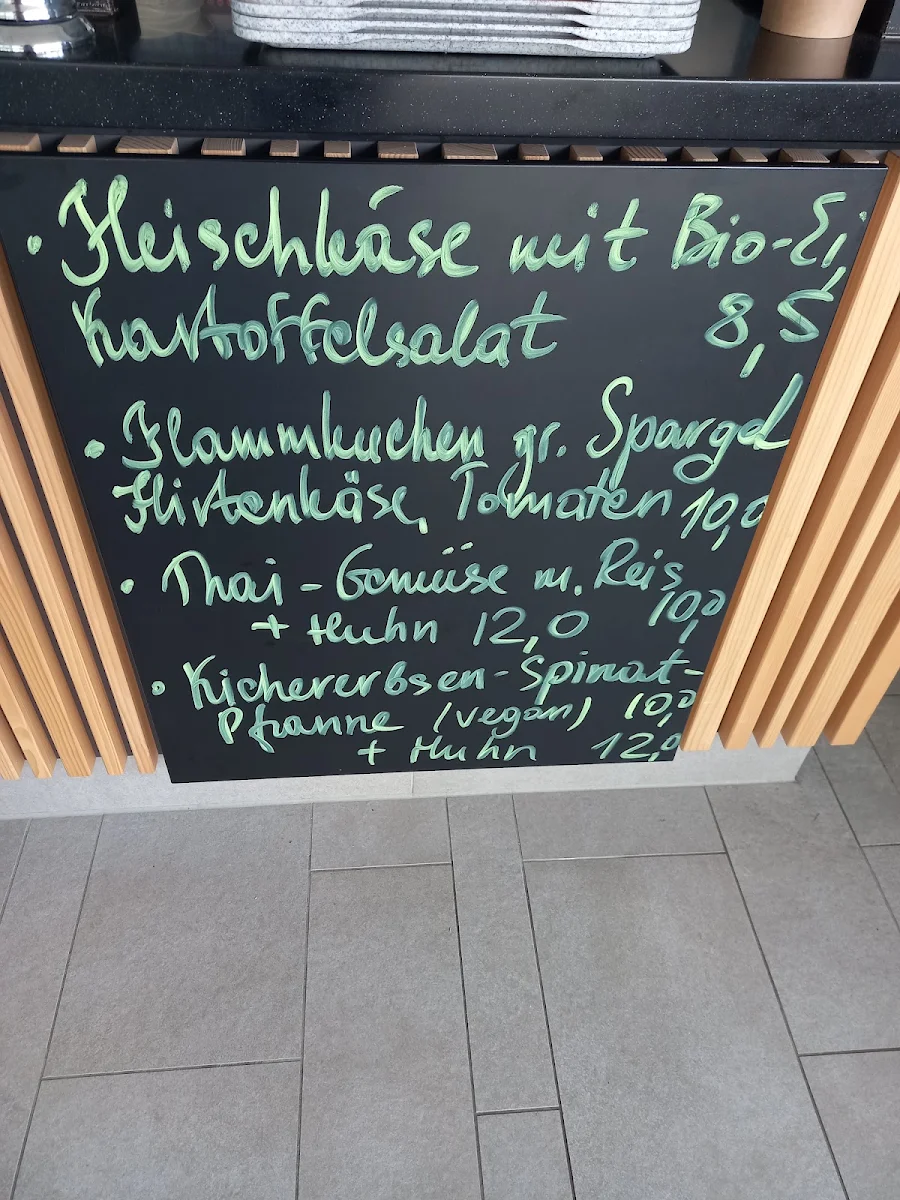 • Fleischkäse mit Bio-Ei,
Kartoffelsalat 8,5
• Flammkuchen gr. Spargel
Hirtenkäse, Tomaten 10,0
• Thai-Gemüse m. Reis 10,0
+ Huhn 12,0
• Kichererbsen-Spinat-
Pfanne (vegan) 10,0
+ Huhn 12,0